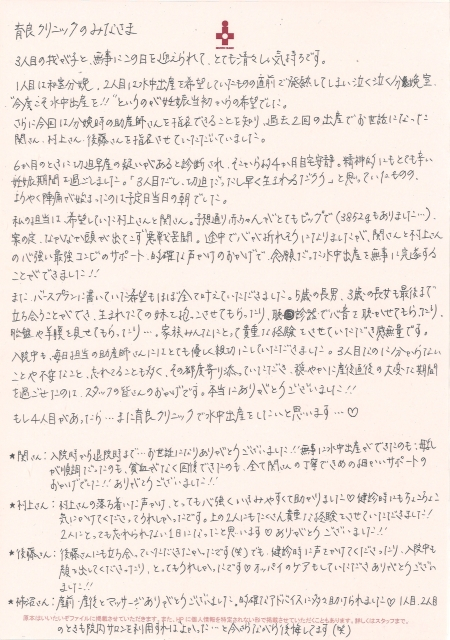 育良クリニックのみなさま
3人目の我が子と、無事にこの日を迎えられて、とても清々しい気持ちです。
1人目は和室分娩、2人目は水中出産を希望していたものの直前で破水してしまい泣く泣く分娩室。
"今度こそ水中出産を!!"というのが妊娠当初からの希望でした。
さらに今回は分娩時の助産師さんを指名できることを知り、過去2回の出産でお世話になった
関さん、村上さん、後藤さんを指名させていただいていました。
6か月のときに切迫早産の疑いがあると診断され、そこから約4か月自宅安静。精神的にもとても辛い
妊娠期間を過ごしました。「3人目だし、切迫だったし早く生まれるだろう」と思っていたものの、
ようやく陣痛が始まったのは予定日当日の朝でした。
私の担当は、希望していた村上さんと関さん。予想通り赤ちゃんがとてもビッグで(3852gもありました…)、
案の定、なかなか頭が出てこず悪戦苦闘。途中で心が折れそうになりましたが、関さんと村上さん
の心強い最強コンビのサポート、的確な声かけのおかげで、念願だった水中出産を無事に完遂する
ことができました!!
また、バースプランに書いていた希望もほぼ全て叶えていただきました。5歳の長男、3歳の長女も最後まで
立ち会うことができ、生まれたての妹を抱っこさせてもらったり、聴診器で心音を聴かせてもらったり、
胎盤や羊膜を見せてもらったり…。家族みんなにとって貴重な経験をさせていただき感無量です。
入院中も、毎日担当の助産師さんにはとても優しく親切にしていただきました。3人目なのに分からない
ことや不安なこと、忘れてることも多く、その都度寄り添っていただき、穏やかに産後直後の大変な期間
を過ごせたのは、スタッフの皆さんのおかげです。本当にありがとうございました!!
もし4人目があったら…また育良クリニックで水中出産をしたいと思います…♡
★関さん:入院時から退院時まで…お世話になりありがとうございました!!無事に水中出産ができたのも、母乳
が順調だったのも、貧血がなく回復できたのも、全て関さんの丁寧できめ細かいサポートの
おかげでした!!ありがとうございました!!
★村上さん:村上さんの落ち着いた声かけ、とっても心強くいきみやすくて助かりました♡健診時にもちょこちょこ
気にかけてくださってうれしかったです。上の2人にもたくさん貴重な経験をさせていただきました!
2人にとっても忘れられない1日になったと思います♡ありがとうございました!
★後藤さん:後藤さんにも立ち会っていただきたかったです(笑)でも、健診時に声をかけてくださったり、入院中も
顔を出してくださったり、とってもうれしかったです♡オッパイのケアもしていただきありがとうござい
ました!!
★柿沼さん:産前・産後とマッサージありがとうございました。的確なアドバイスにめっちゃ助けられました♡1人目、2人目
のときも院内サロンを利用すればよかった…と今さらながら後悔してます(笑)